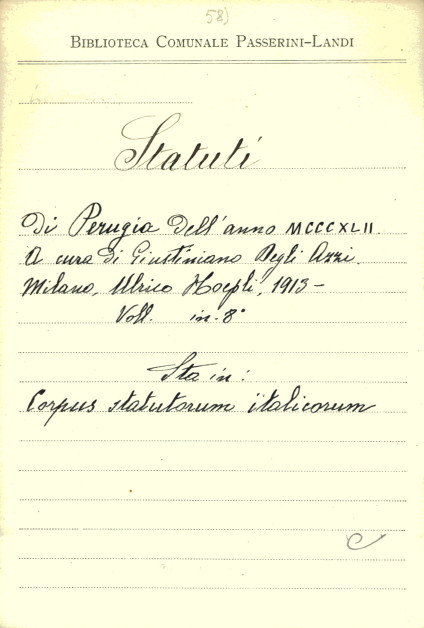 58)
BIBLIOTECA COMUNALE PASSERINI-LANDI
Statuti
di Perugia dell'anno MCCCXLII.
A cura di Giustiniano Degli Azzi.
Milano, Ulrico Hoepli, 1913-
Voll. in-8°
Sta in:
Corpus statutorum italicorum
C